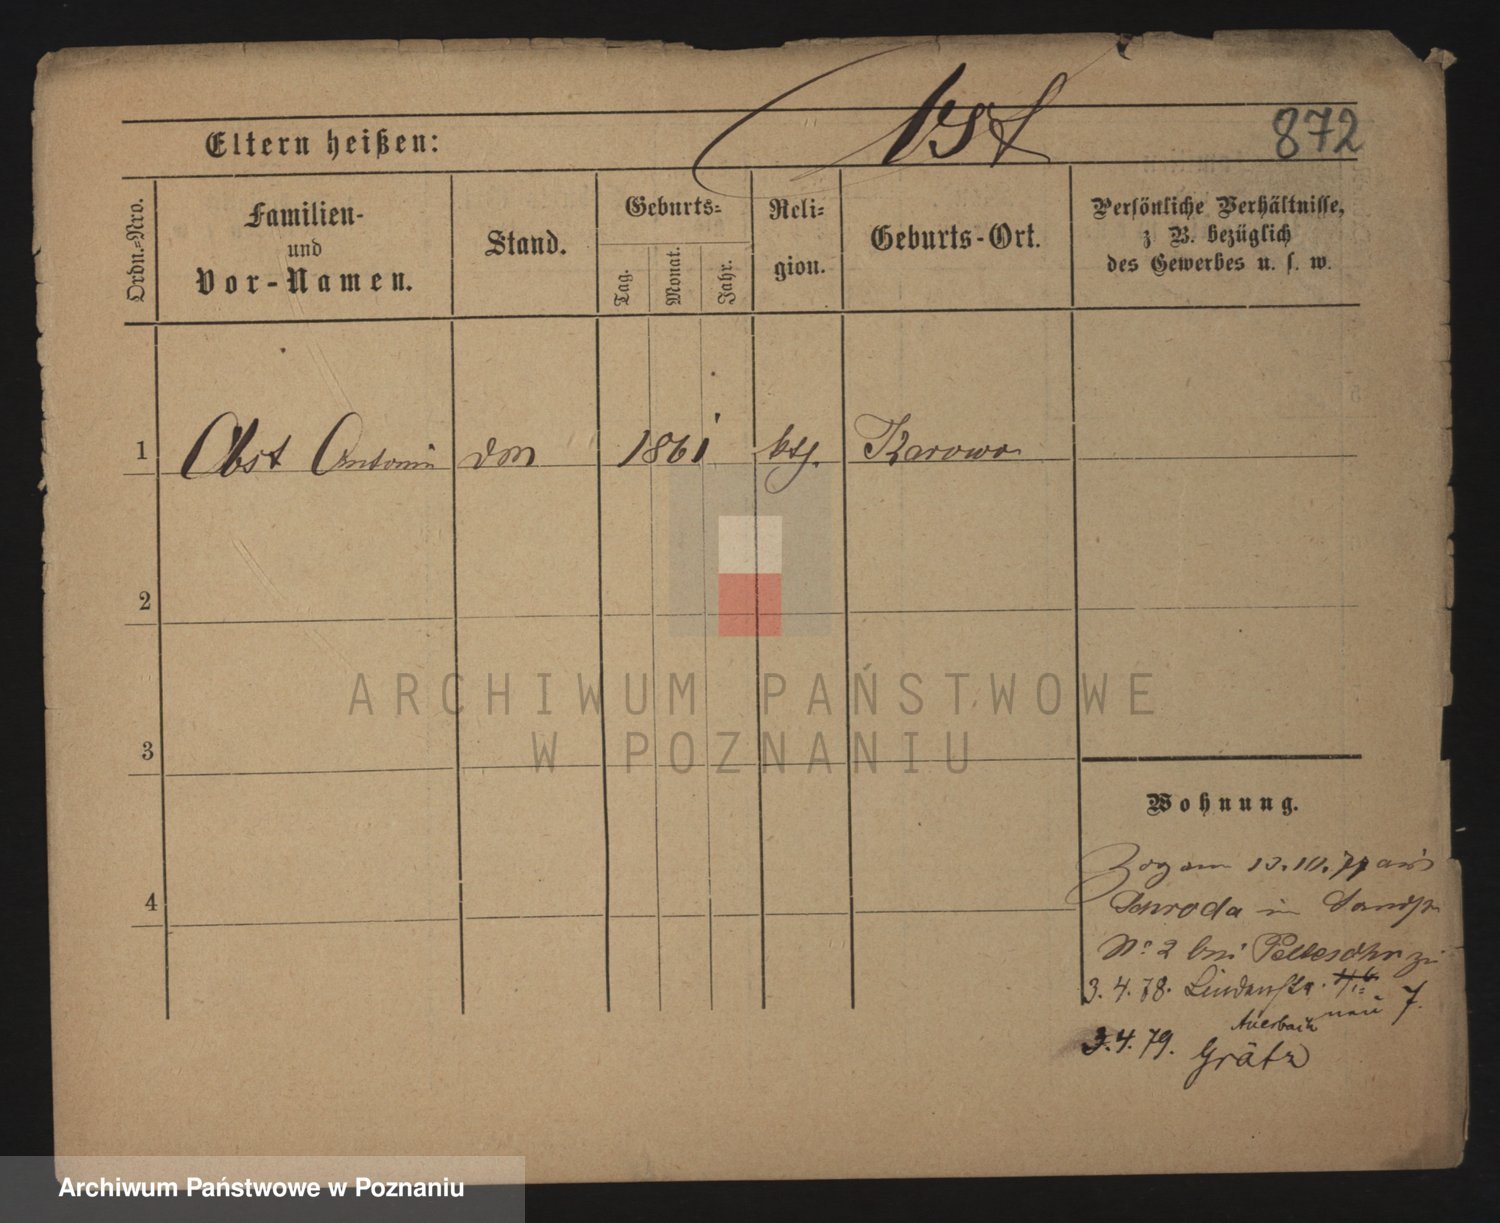 Obst
872
Eltern heißen:
Ordn.-Nro.
Familien-
und
Vor-Namen.
Stand.
Geburts-
Tag.
Monat.
Jahr.
Reli-
gion.
Geburts-Ort.
Persönliche Verhältnisse,
z B. bezüglich
des Gewerbes u. s. w.
1 Obst Antonie 1861 ktg. Karowo
2
3
4
ARCHIWUM PAŃSTWOWE
W POZNANIU
Wohnung.
Zog am 10.77 aus
Schroda in
No 2 bei
3.4.78. Lindenstr. neu 7.
Auerbach
3.4.79. Grätz
Archiwum Państwowe w Poznaniu